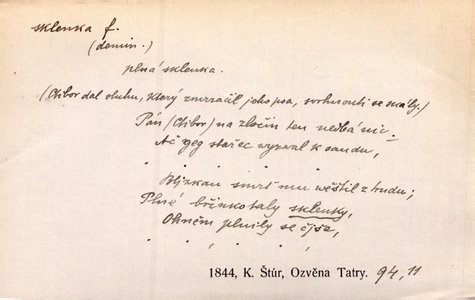 sklenka f.
(demin.)
plná sklenka.
(Ctibor dal sluhu, který zmrzačil jeho psa, svrhnouti se skály.)
Pán (Ctibor) na zločin ten nedbá nic.
Ač geg stařec wyzwal k saudu,
Blízkau smrť mu wěštil z trudu;
Plné břinkotaly sklenky,
Ohněm plnily se čjše,
. . , . .
1844, K. Štúr, Ozvěna Tatry. 94, 11